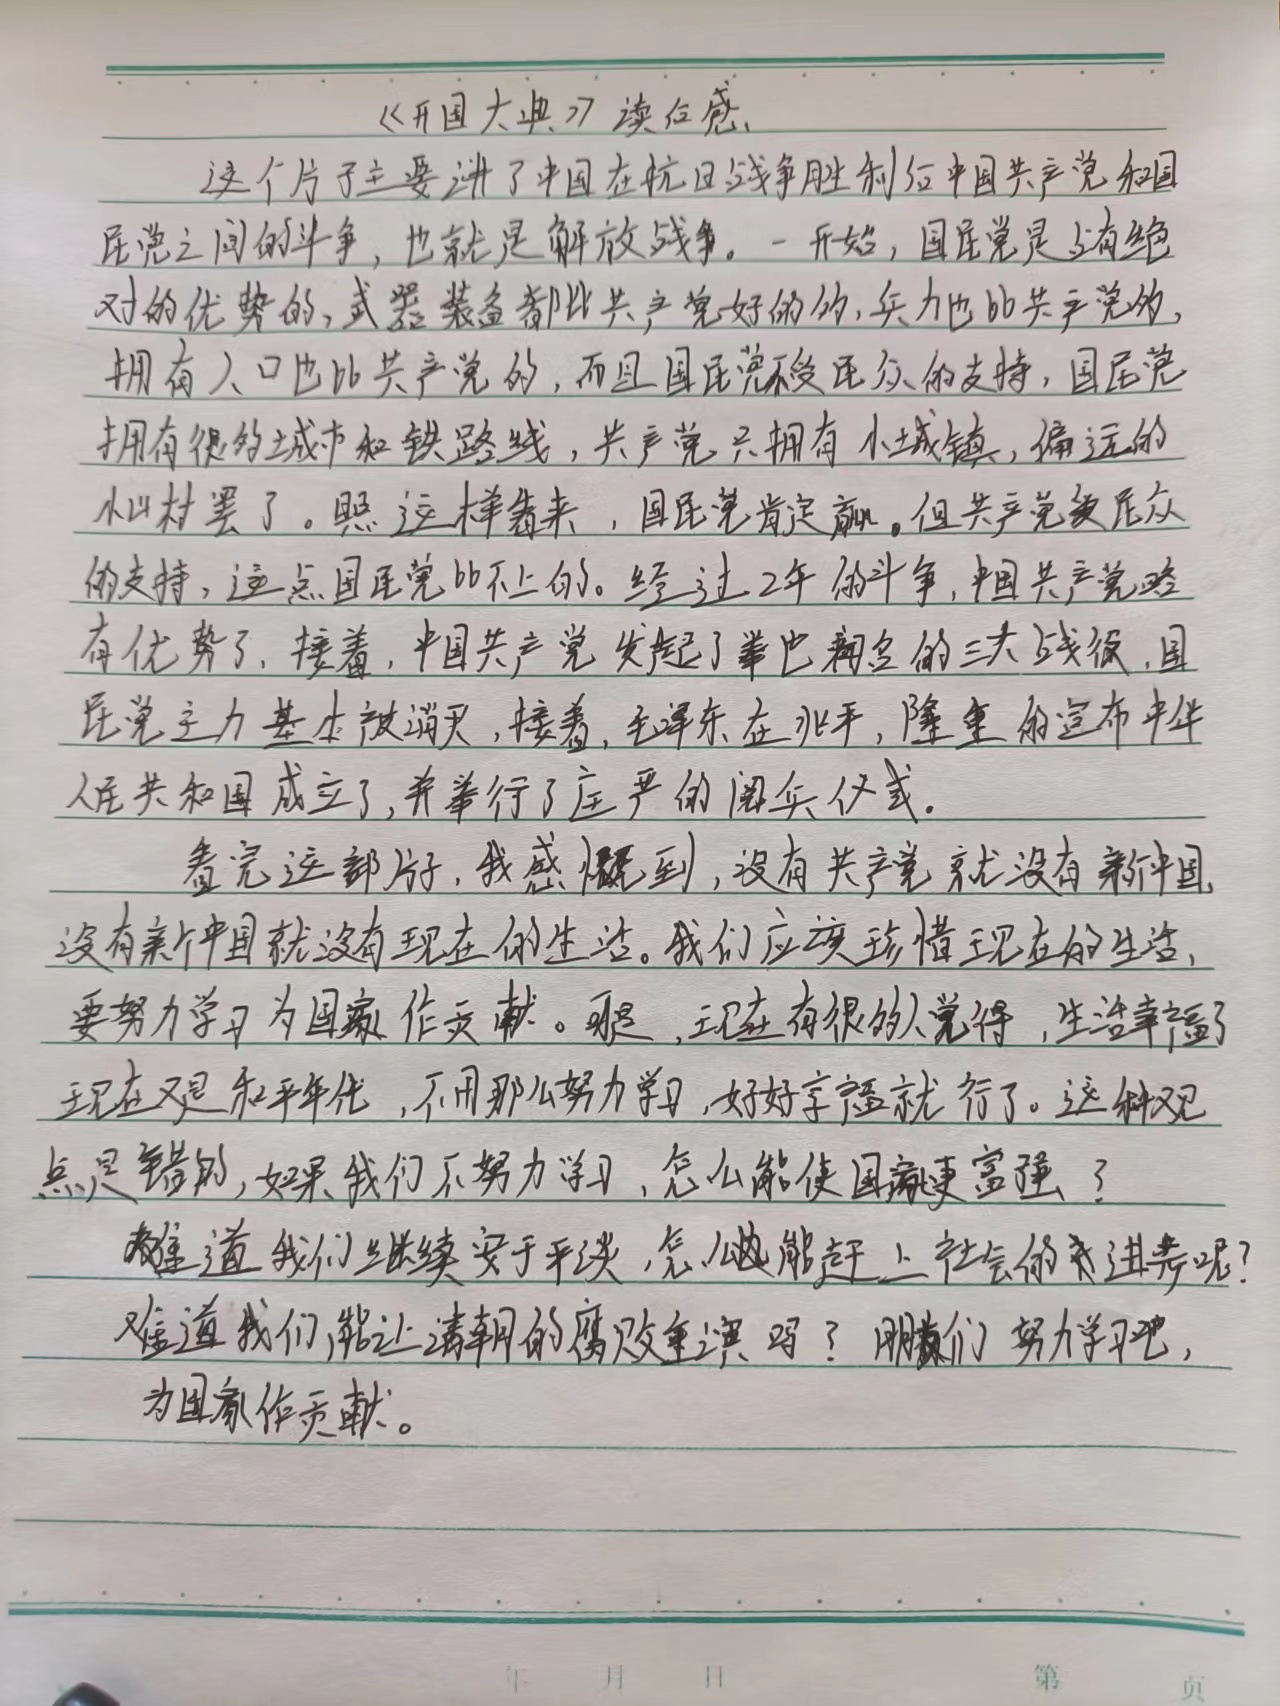 《开国大典》读后感
这个片子主要讲了中国在抗日战争胜利后中国共产党和国
民党之间的斗争，也就是解放战争。一开始，国民党是占有绝
对的优势的，武器装备都比共产党好的的，兵力也比共产党的，
拥有人口也比共产党的，而且国民党不受民众的支持，国民党
拥有很的城市和铁路线，共产党只拥有小城镇，偏远的
小山村罢了。照这样看来，国民党肯定赢。但共产党受民众
的支持，这点国民党比不上的。经过2年的斗争，中国共产党略
有优势了，接着，中国共产党发起了举世闻名的三大战役，国
民党主力基本被消灭，接着，毛泽东在北平，隆重的宣布中华
人民共和国成立了，并举行了庄严的阅兵仪式。
看完这部片子，我感慨到，没有共产党就没有新中国，
没有新中国就没有现在的生活。我们应该珍惜现在的生活，
要努力学习为国家作贡献。可是，现在有很的人觉得，生活幸福了
现在又是和平年代，不用那么努力学习，好好享福就行了。这种观
点是错的，如果我们不努力学习，怎么能使国家更富强？
难道我们继续安于平淡，怎么能赶上社会的进步呢？
难道我们能让清朝的腐败重演吗？朋友们努力学习吧，
为国家作贡献。
年 月 日 第 页